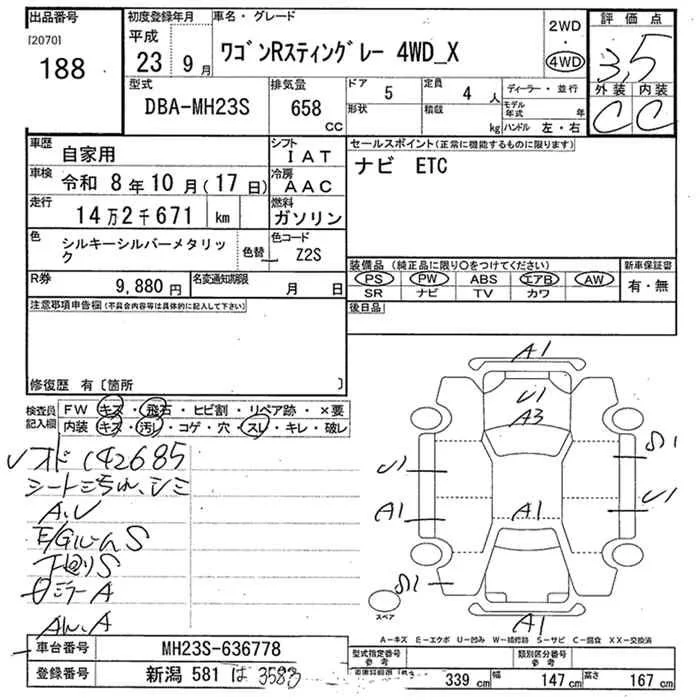 出品番号 初度登録年月 車名・グレード 評価点
[2070] 188
平成 23 9月
ワゴンRスティングレー 4WD_X
2WD ・ 4WD
3,5
外装 内装
C C
型式 DBA-MH23S
排気量 658 cc
ドア 5 定員 4 人
形状 積載 kg
ディーラー・並行
モデル年式 年
ハンドル 左・右
車歴 自家用
シフト IAT
車検 令和 8年 10月(17日)
冷房 AAC
走行 14万2千671 km
燃料 ガソリン
色 シルキーシルバーメタリック
色替
色コード Z2S
R券 9,880円
名変通知期限 月 日
セールスポイント(正常に機能するものに限ります)
ナビ ETC
装備品 (純正品に限り○をつけてください) 新車保証書
PS PW ABS エアB AW 有・無
SR ナビ TV カワ
後日品
注意事項申告欄(不具合内容等は具体的に記入して下さい)
修復歴 有〔箇所 〕
検査員記入欄
FW キズ・飛石・ヒビ割・リペア跡・×要
内装 キズ・汚レ・コゲ・穴・スレ・キレ・破レ
142685
シート
A、U
E/Gルーム S
下回り S
ミラー A
A
A1
U1
A3
S1
U1
U1
A1
A1
S1
A1
スペア
A-キズ E-エクボ U-凹み W-補修跡 S-サビ C-腐食 XX-交換済
車台番号 MH23S-636778
登録番号 新潟 581 は 3583
型式指定番号 参考
類別区分番号 参考
339 cm 幅 147 cm 高さ 167 cm